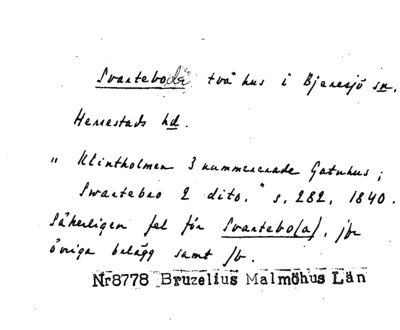 Svartebodar två hus i Bjeresjö sn.
Herrestads hd.
"Klintholmen 3 nummererade Gatuhus;
Swartebro 2 dito." s. 282, 1840.
Säkerligen fel för Svartebo(a), jfr
övriga belägg samt jb.
Nr8778 Bruzelius Malmöhus Län